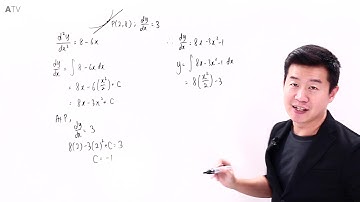 ATV
P(2,8), dy/dx = 3
d²y/dx² = 8 - 6x
dy/dx = ∫ 8 - 6x dx
= 8x - 6(x²/2) + C
= 8x - 3x² + C
At P,
dy/dx = 3
8(2) - 3(2)² + C = 3
C = -1
dy/dx = 8x - 3x² - 1
y = ∫ 8x - 3x² - 1 dx
= 8(x²/2) - 3